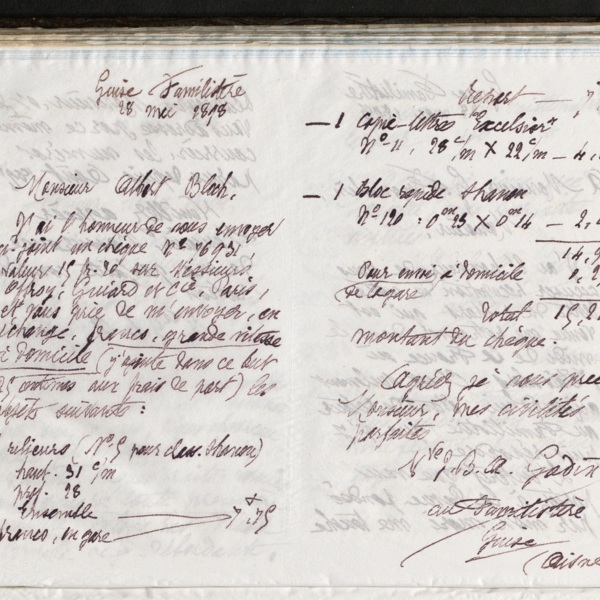 Guise Familistère
28 mai 1898
Monsieur Albert Bloch,
J'ai l'honneur de vous envoyer
ci-joint un chèque N°
valeur 15 fr. 20 sur Messieurs
Offroy, Guiard et Cie, Paris,
et vous prie de m'envoyer, en
échange, franco, grande vitesse
à domicile (j'ajoute dans ce but
25 centimes aux frais de port) les
objets suivants :
relieurs (N° 5 pour class. Shannon)
haut. 31 c/m
prof. 28
Ensemble
franco, en gare 7,75
Report — 7
— 1 Copie-lettres "Excelsior"
N° 11, 28 c/m X 22 c/m — 4,
— 1 bloc rapide Shannon
N° 120 : 0m23 X 0m14 — 2,
14,9
Pour envoi à domicile 0,2
de la gare
Total 15,2
montant du chèque.
Agréez je vous prie
Monsieur, mes civilités
parfaites
Vve J. B. A. Godin
au Familistère
Guise
(Aisne